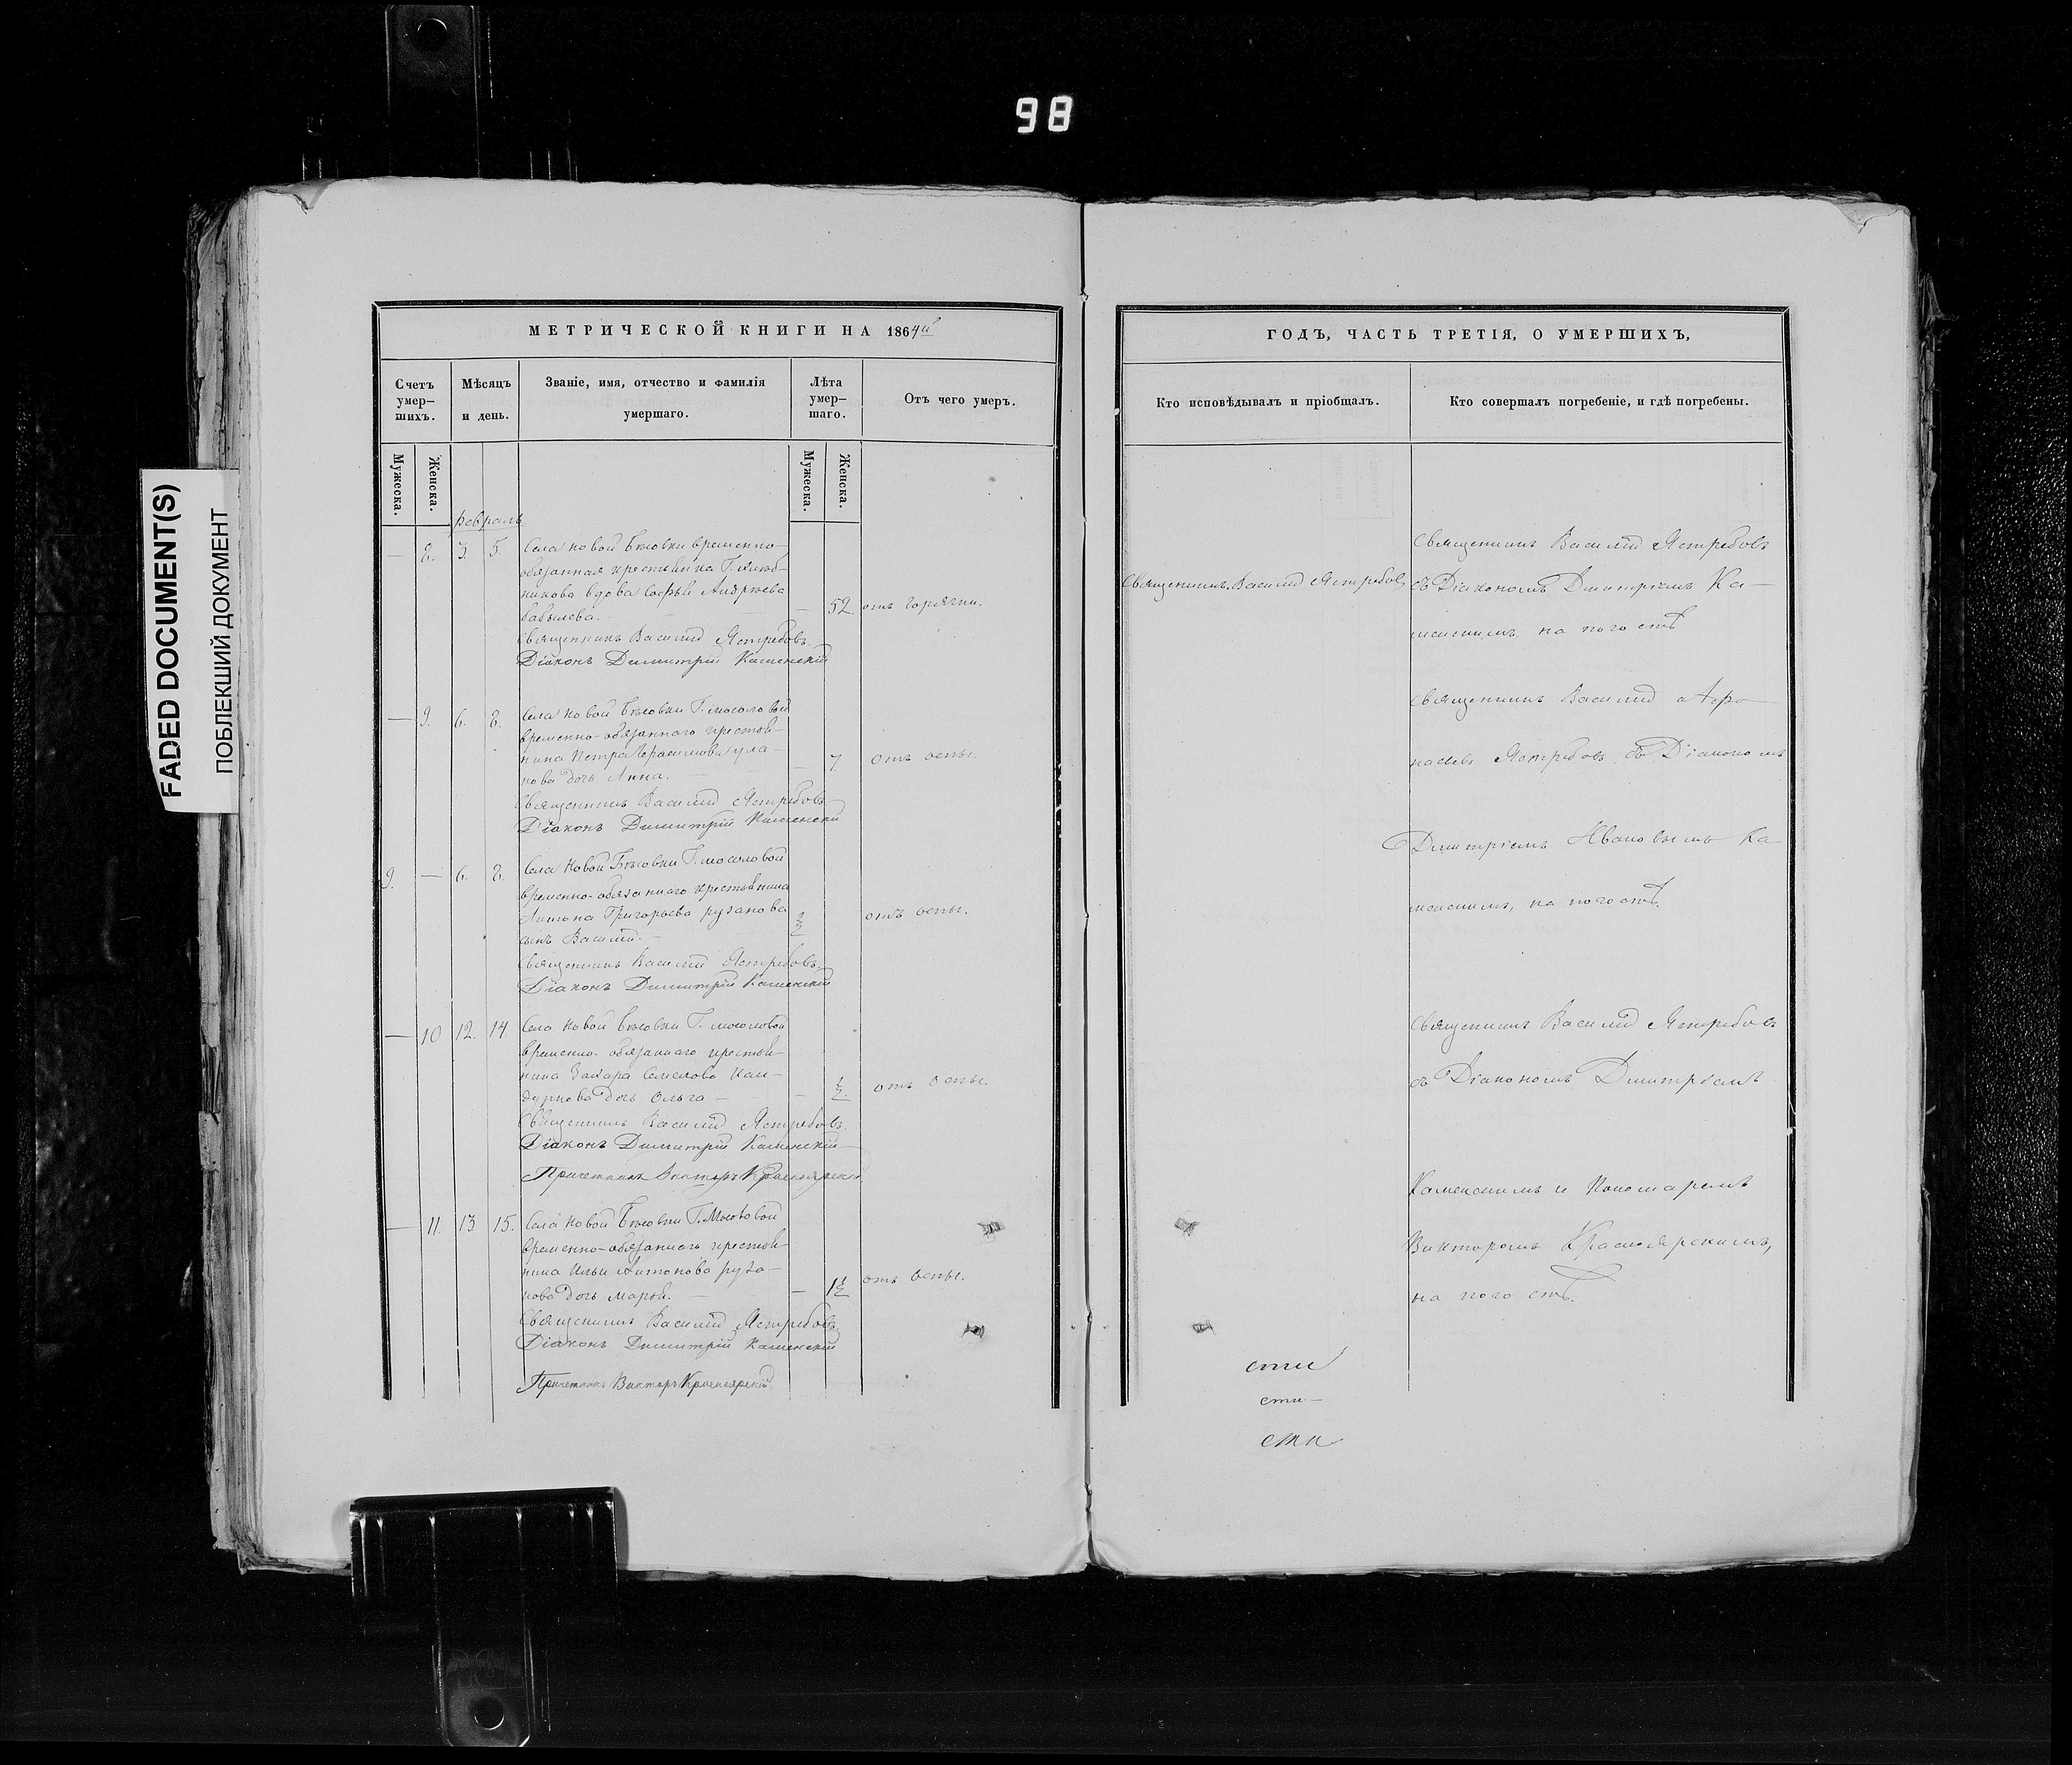 98
FADED DOCUMENT(S)
ПОБЛЕКШИЙ ДОКУМЕНТ
МЕТРИЧЕСКОЙ КНИГИ НА 1864й
Счетъ умер-шихъ.
Мѣсяцъ и день.
Званіе, имя, отчество и фамилія умершаго.
Лѣта умер-шаго.
Отъ чего умеръ.
Мужеска.
Женска.
Мужеска.
Женска.
февраль
— 8. 3. 5. Села новой временно-
обязанная крестьянка Г.
вдова Софья Андреева
— 52. отъ горячки.
Священникъ Василій Ястребовъ
Діаконъ Димитрій Каменскій
— 9. 6. 8. Села новой Г. Мосоловой
временно-обязаннаго крестья-
нина Петра Герасимова ула-
нова дочь Анна. — 7. отъ оспы.
Священникъ Василій Ястребовъ
Діаконъ Димитрій Каменскій
9. — 6. 8. Села Новой Г. Мосоловой
временно-обязаннаго крестьянина
Антона Григорьева рузанова
сынъ Василій. отъ оспы.
Священникъ Василій Ястребовъ
Діаконъ Димитрій Каменскій
— 10 12. 14 Села Новой Г. Мосоловой
временно-обязаннаго крестья-
нина Захара
дочь Ольга — отъ оспы.
Священникъ Василій Ястребовъ
Діаконъ Димитрій Каменскій
Причетникъ Викторъ Красноярскій
— 11 13 15. Села Новой Г. Мосоловой
временно-обязаннаго крестья-
нина Ильи Антонова руза-
нова дочь Марья. — 1½ отъ оспы.
Священникъ Василій Ястребовъ
Діаконъ Димитрій Каменскій
Причетникъ Викторъ Красноярскій
ГОДЪ, ЧАСТЬ ТРЕТІЯ, О УМЕРШИХЪ,
Кто исповѣдывалъ и пріобщалъ.
Кто совершалъ погребеніе, и гдѣ погребены.
Священникъ Василій Ястребовъ
Священникъ Василій Ястребовъ
съ Діакономъ Димитріемъ Ка-
менскимъ, на погостѣ
Священникъ Василій Афа-
насьевъ Ястребовъ съ Діакономъ
Димитріемъ Ивановымъ Ка-
менскимъ, на погостѣ.
Священникъ Василій Ястребовъ
съ Діакономъ Димитріемъ
Каменскимъ и Пономаремъ
Викторомъ Красноярскимъ,
на погостѣ.
сти
сти-
сти